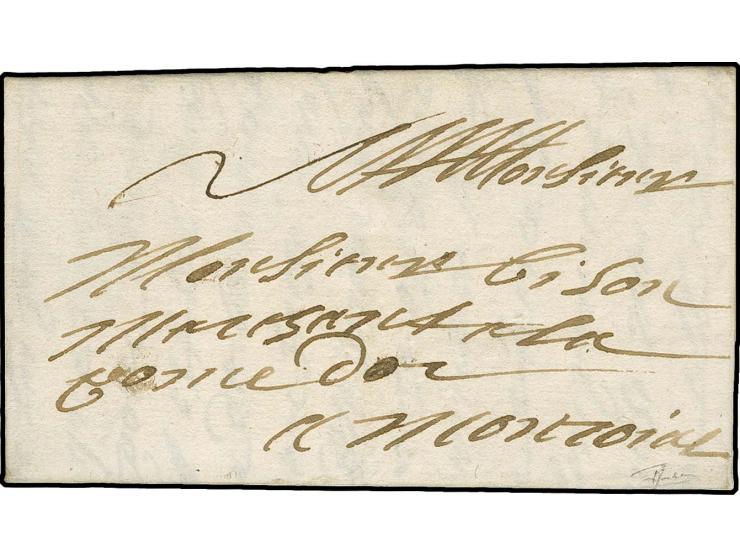 A Monsieur
Monsieur Cison
Marchant a la
pome Dor
a Montroial